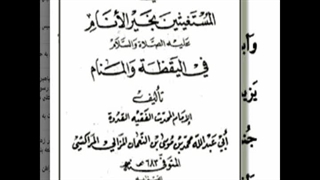 المستغيثين بخير الأنام
عليه الصلاة والسلام
في اليقظة والمنام
تأليف
الإمام المحدث الفقيه القدوة
أبي عبدالله محمد بن موسى بن النعمان المزالي المراكشي
المتوفى ٦٨٣ هـ